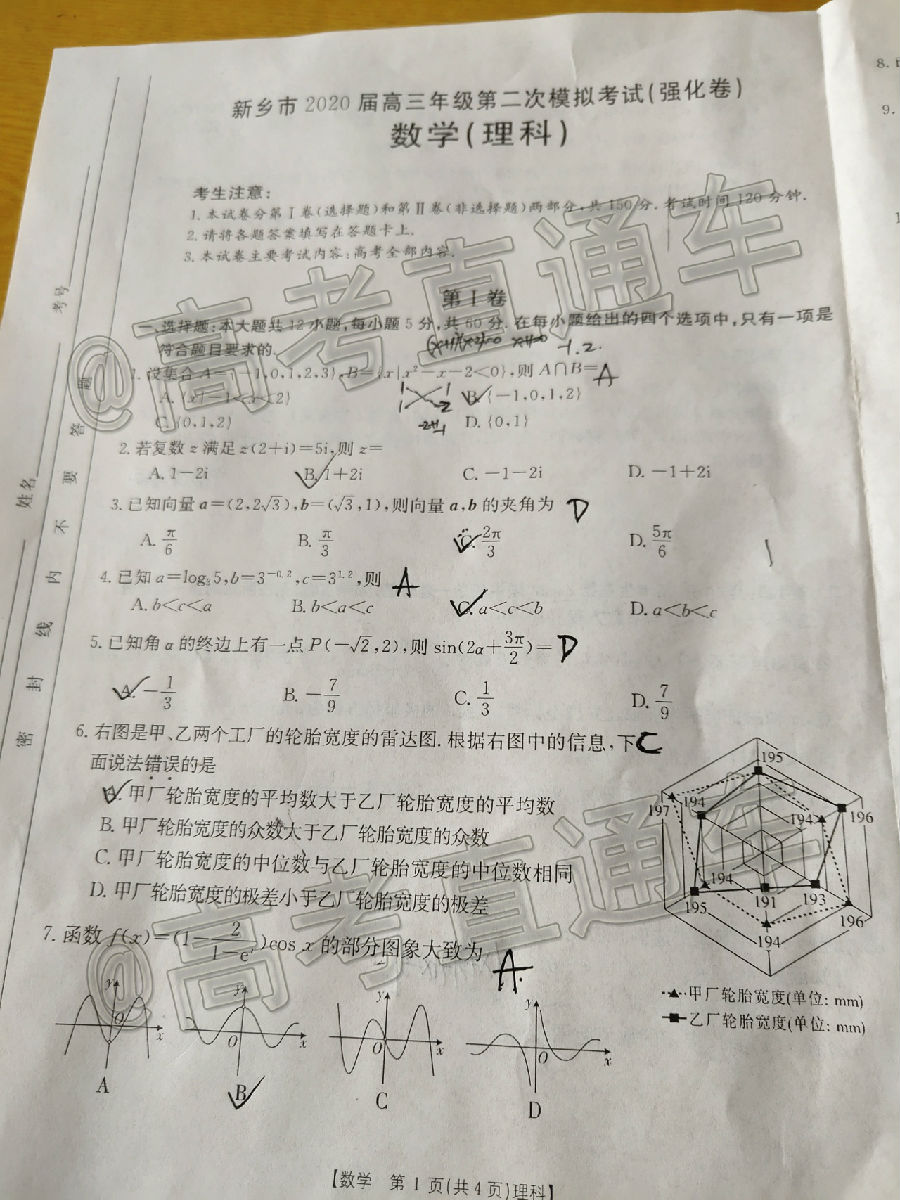 新乡市 2020 届高三年级第二次模拟考试(强化卷)
数学(理科)
考生注意:
1.本试卷分第Ⅰ卷(选择题)和第Ⅱ卷(非选择题)两部分,共 150 分.考试时间 120 分钟.
2.请将各题答案填写在答题卡上.
3.本试卷主要考试内容:高考全部内容.
第Ⅰ卷
一、选择题:本大题共 12 小题,每小题 5 分,共 60 分.在每小题给出的四个选项中,只有一项是
符合题目要求的.
-1.2.
1.设集合 A={-1,0,1,2,3},B={x|x²-x-2<0},则 A∩B= A
A.{x|-1<x<2} B.{-1,0,1,2}
C.{0,1,2} D.{0,1}
2.若复数 z 满足 z(2+i)=5i,则 z=
A.1-2i B.1+2i C.-1-2i D.-1+2i
3.已知向量 a=(2,2√3),b=(√3,1),则向量 a,b 的夹角为 D
A.π/6 B.π/3 C.2π/3 D.5π/6
4.已知 a=log₃5,b=3^-0.2,c=3^1.2,则 A
A.b<c<a B.b<a<c C.a<c<b D.a<b<c
5.已知角 α 的终边上有一点 P(-√2,2),则 sin(2α+3π/2)= D
A.-1/3 B.-7/9 C.1/3 D.7/9
6.右图是甲、乙两个工厂的轮胎宽度的雷达图.根据右图中的信息,下 C
面说法错误的是
A.甲厂轮胎宽度的平均数大于乙厂轮胎宽度的平均数
B.甲厂轮胎宽度的众数大于乙厂轮胎宽度的众数
C.甲厂轮胎宽度的中位数与乙厂轮胎宽度的中位数相同
D.甲厂轮胎宽度的极差小于乙厂轮胎宽度的极差
195
197 194 194 196
194 191 193
195 194 196
甲厂轮胎宽度(单位: mm)
乙厂轮胎宽度(单位: mm)
7.函数 f(x)=(1-2/(1-eˣ))cos x 的部分图象大致为 A
y O x
y O x
y O x
y O x
A B C D
【数学 第 1 页(共 4 页)理科】
考号
姓名
密 封 线 内 不 要 答 题
8.
9.
@高考直通车
@高考直通车